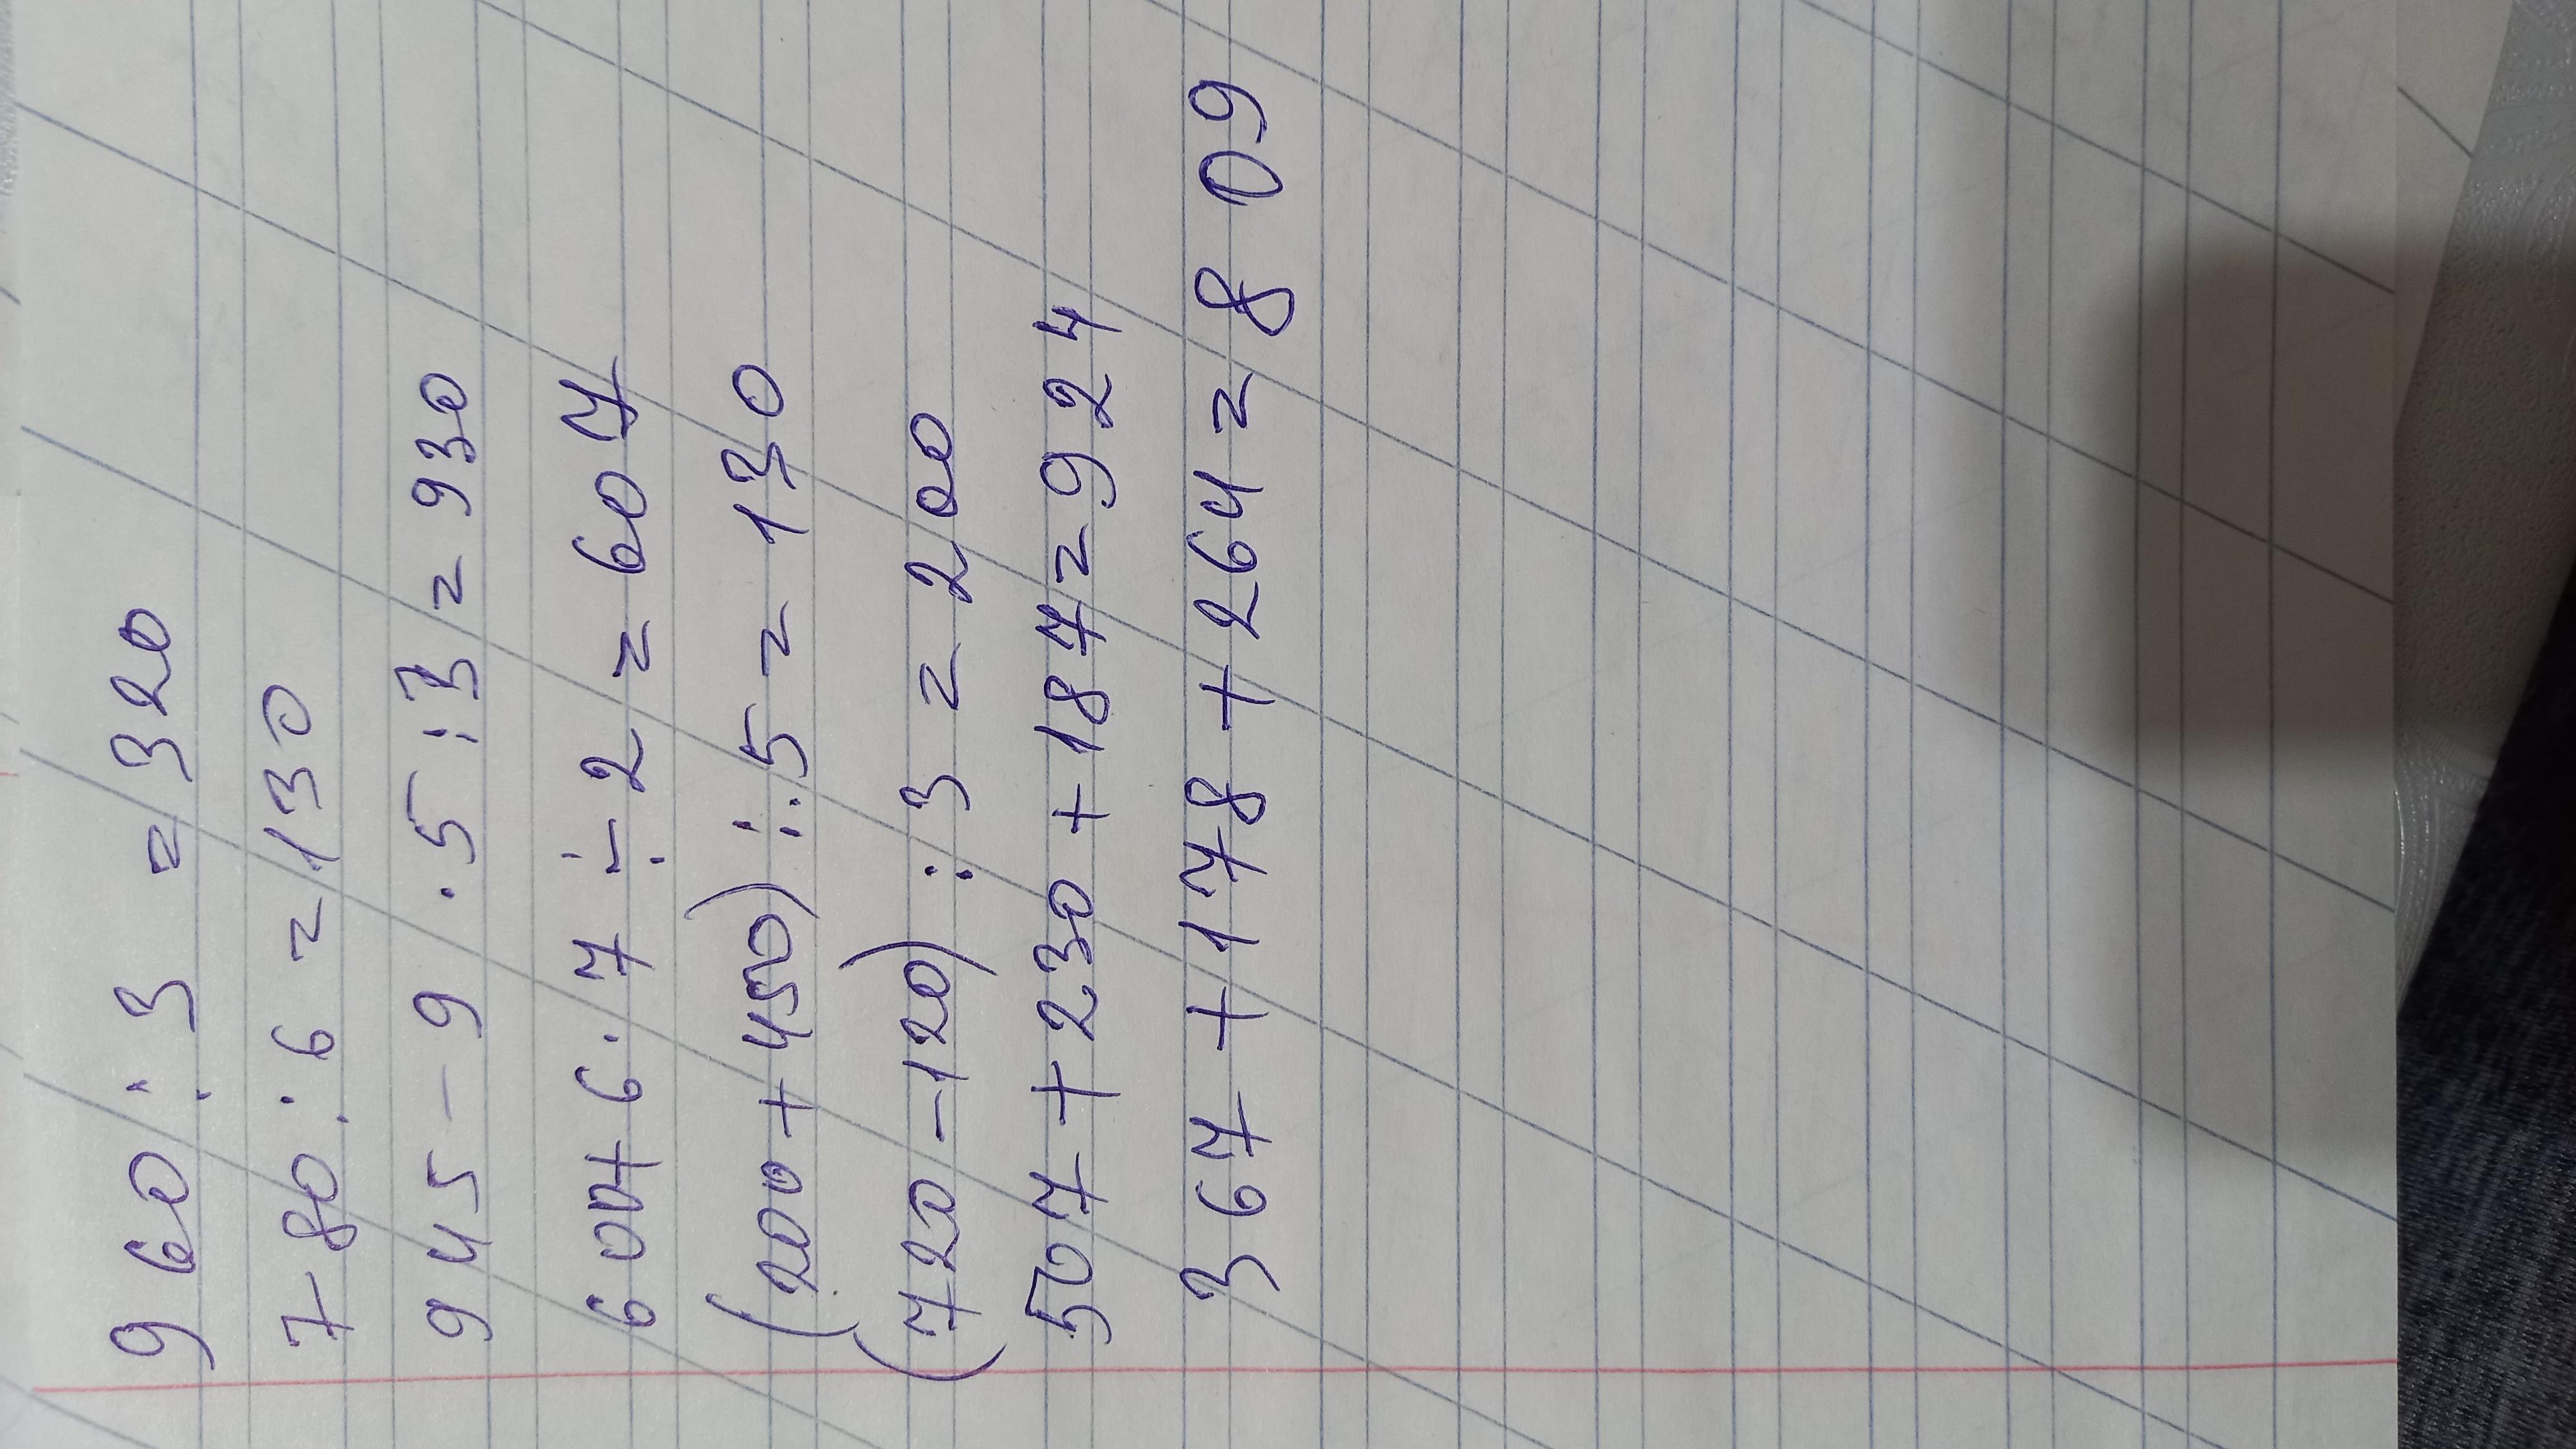 960 : 3 = 320
780 : 6 = 130
945 - 9 · 5 : 3 = 930
600+6·7÷2 = 607
(200+450) : 5 = 130
(720-120) : 3 = 200
507+230+187=924
367+178+264=809